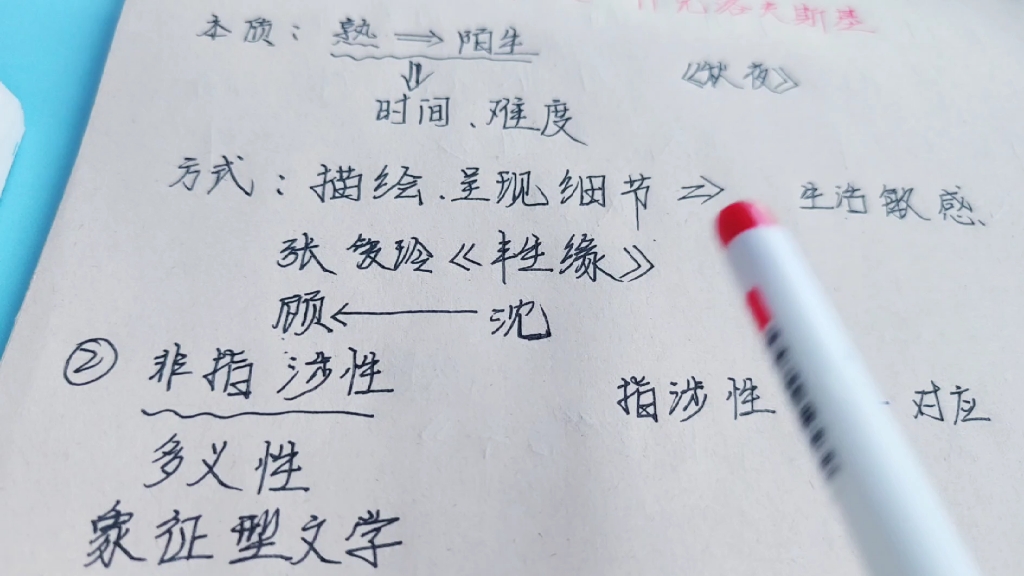 什克洛夫斯基
本质：熟 ⇒ 陌生
《秋夜》
⇓
时间、难度
方式：描绘.呈现细节 ⇒ 生活敏感.
张爱玲《半生缘》
顾 ← 沈
② 非指涉性
指涉性 对应
多义性
象征型文学